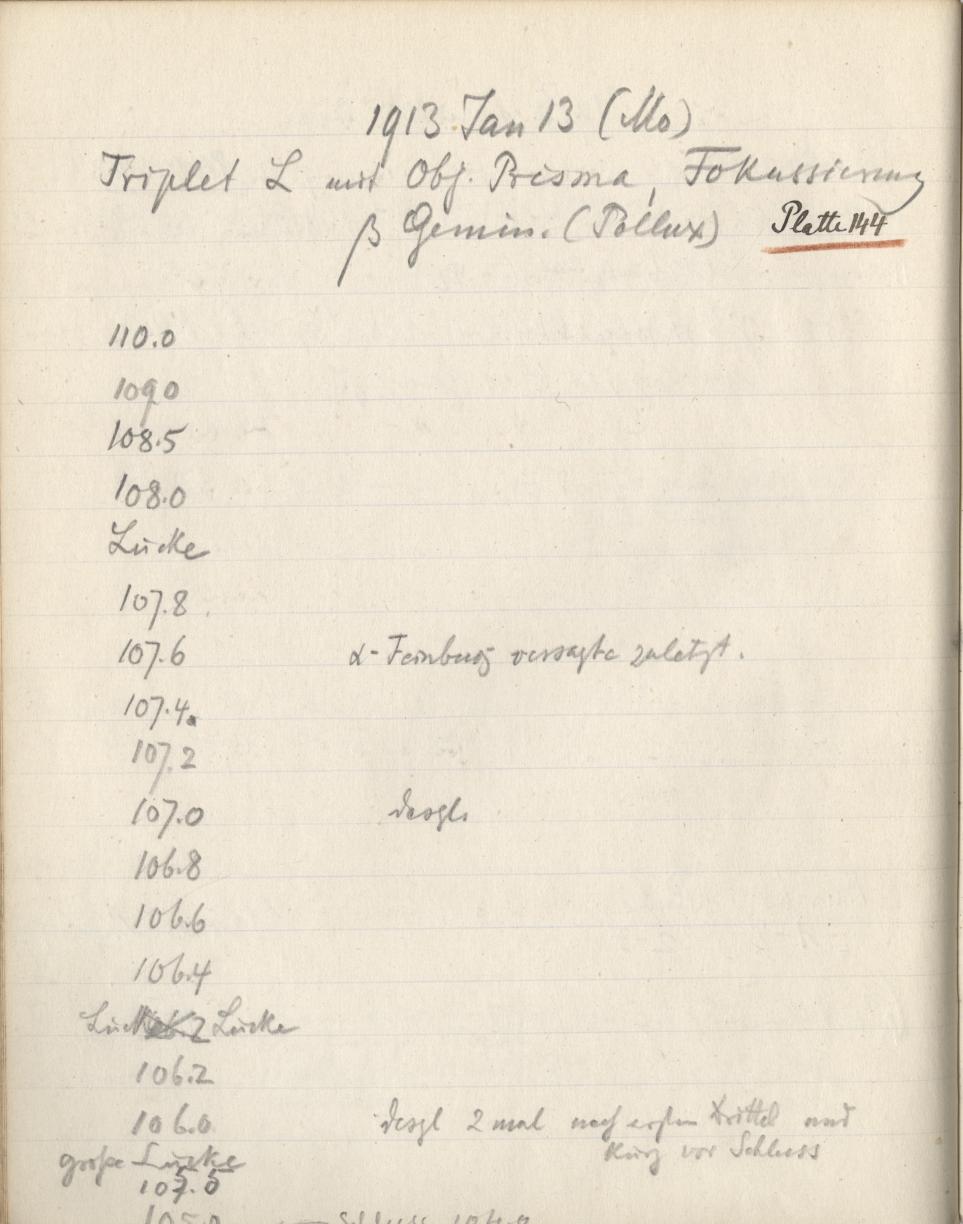 1913 Jan 13 (Mo)
Triplet L mit Obj. Prisma, Fokussierung
β Gemin. (Pollux) Platte 144
110.0
109 0
108.5
108.0
Lücke
107.8
107.6 α-Feinbewg versagte zuletzt.
107.4
107.2
107.0 desgl.
106.8
106.6
106.4
Lücke Lücke
106.2
106.0 desgl 2 mal nach erstem Drittel und
kurz vor Schluss
große Lücke
105.0 Schluss